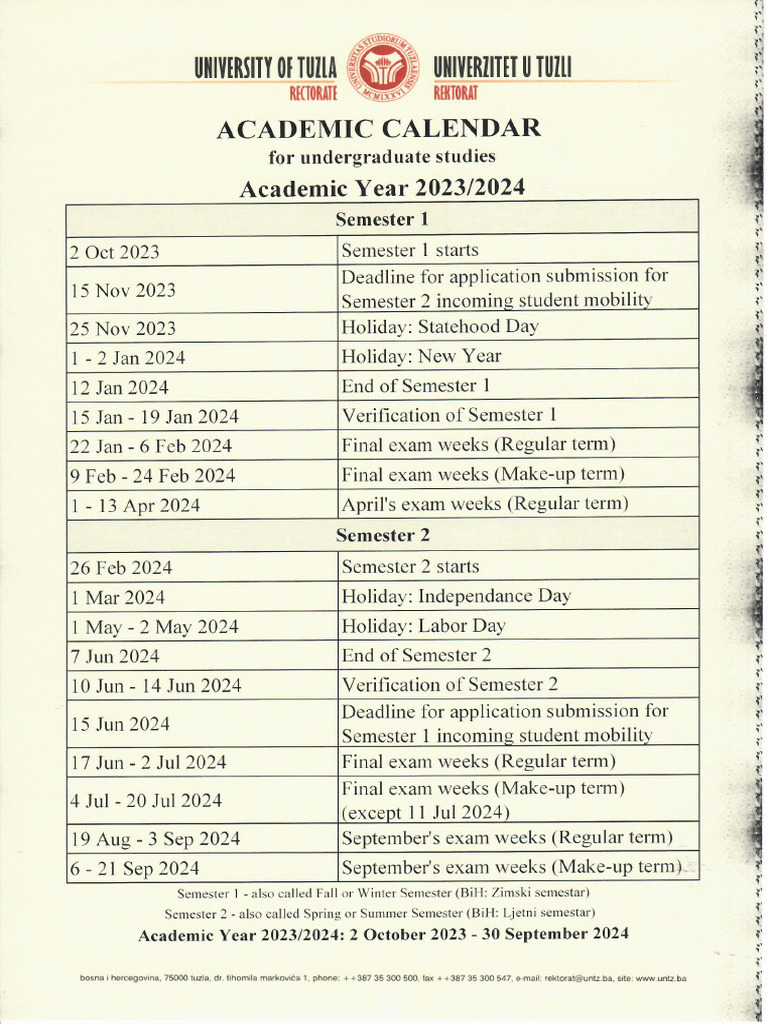 UNIVERSITY OF TUZLA
RECTORATE
UNIVERSITAS STUDIORUM TUZLAENSIS
MCMLXXVI
UNIVERZITET U TUZLI
REKTORAT
ACADEMIC CALENDAR
for undergraduate studies
Academic Year 2023/2024
Semester 1
2 Oct 2023 Semester 1 starts
15 Nov 2023 Deadline for application submission for
Semester 2 incoming student mobility
25 Nov 2023 Holiday: Statehood Day
1 - 2 Jan 2024 Holiday: New Year
12 Jan 2024 End of Semester 1
15 Jan - 19 Jan 2024 Verification of Semester 1
22 Jan - 6 Feb 2024 Final exam weeks (Regular term)
9 Feb - 24 Feb 2024 Final exam weeks (Make-up term)
1 - 13 Apr 2024 April's exam weeks (Regular term)
Semester 2
26 Feb 2024 Semester 2 starts
1 Mar 2024 Holiday: Independance Day
1 May - 2 May 2024 Holiday: Labor Day
7 Jun 2024 End of Semester 2
10 Jun - 14 Jun 2024 Verification of Semester 2
15 Jun 2024 Deadline for application submission for
Semester 1 incoming student mobility
17 Jun - 2 Jul 2024 Final exam weeks (Regular term)
4 Jul - 20 Jul 2024 Final exam weeks (Make-up term)
(except 11 Jul 2024)
19 Aug - 3 Sep 2024 September's exam weeks (Regular term)
6 - 21 Sep 2024 September's exam weeks (Make-up term)
Semester 1 - also called Fall or Winter Semester (BiH: Zimski semestar)
Semester 2 - also called Spring or Summer Semester (BiH: Ljetni semestar)
Academic Year 2023/2024: 2 October 2023 - 30 September 2024
bosna i hercegovina, 75000 tuzla, dr. tihomila markovića 1, phone: ++387 35 300 500, fax ++387 35 300 547, e-mail: rektorat@untz.ba, site: www.untz.ba